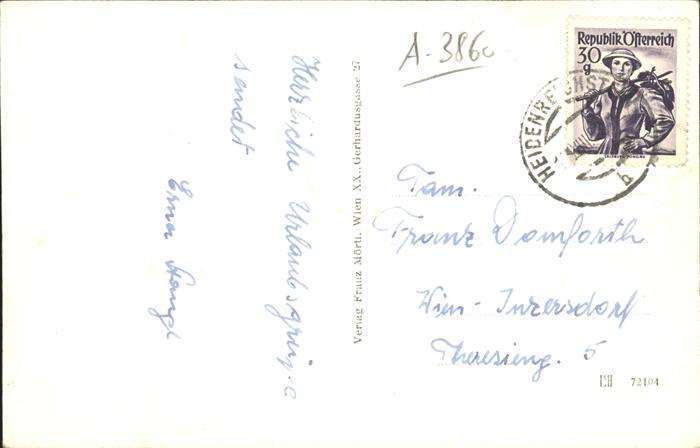 Herzliche Urlaubsgrüße
sendet
Erna
Verlag Franz Mörtl, Wien XX., Gerhardusgasse 27
A-3860
Republik Österreich
30
g
HEIDENREICHST
b
Fam.
Franz Domforth
Wien-Inzersdorf
Theresieng. 5
72104